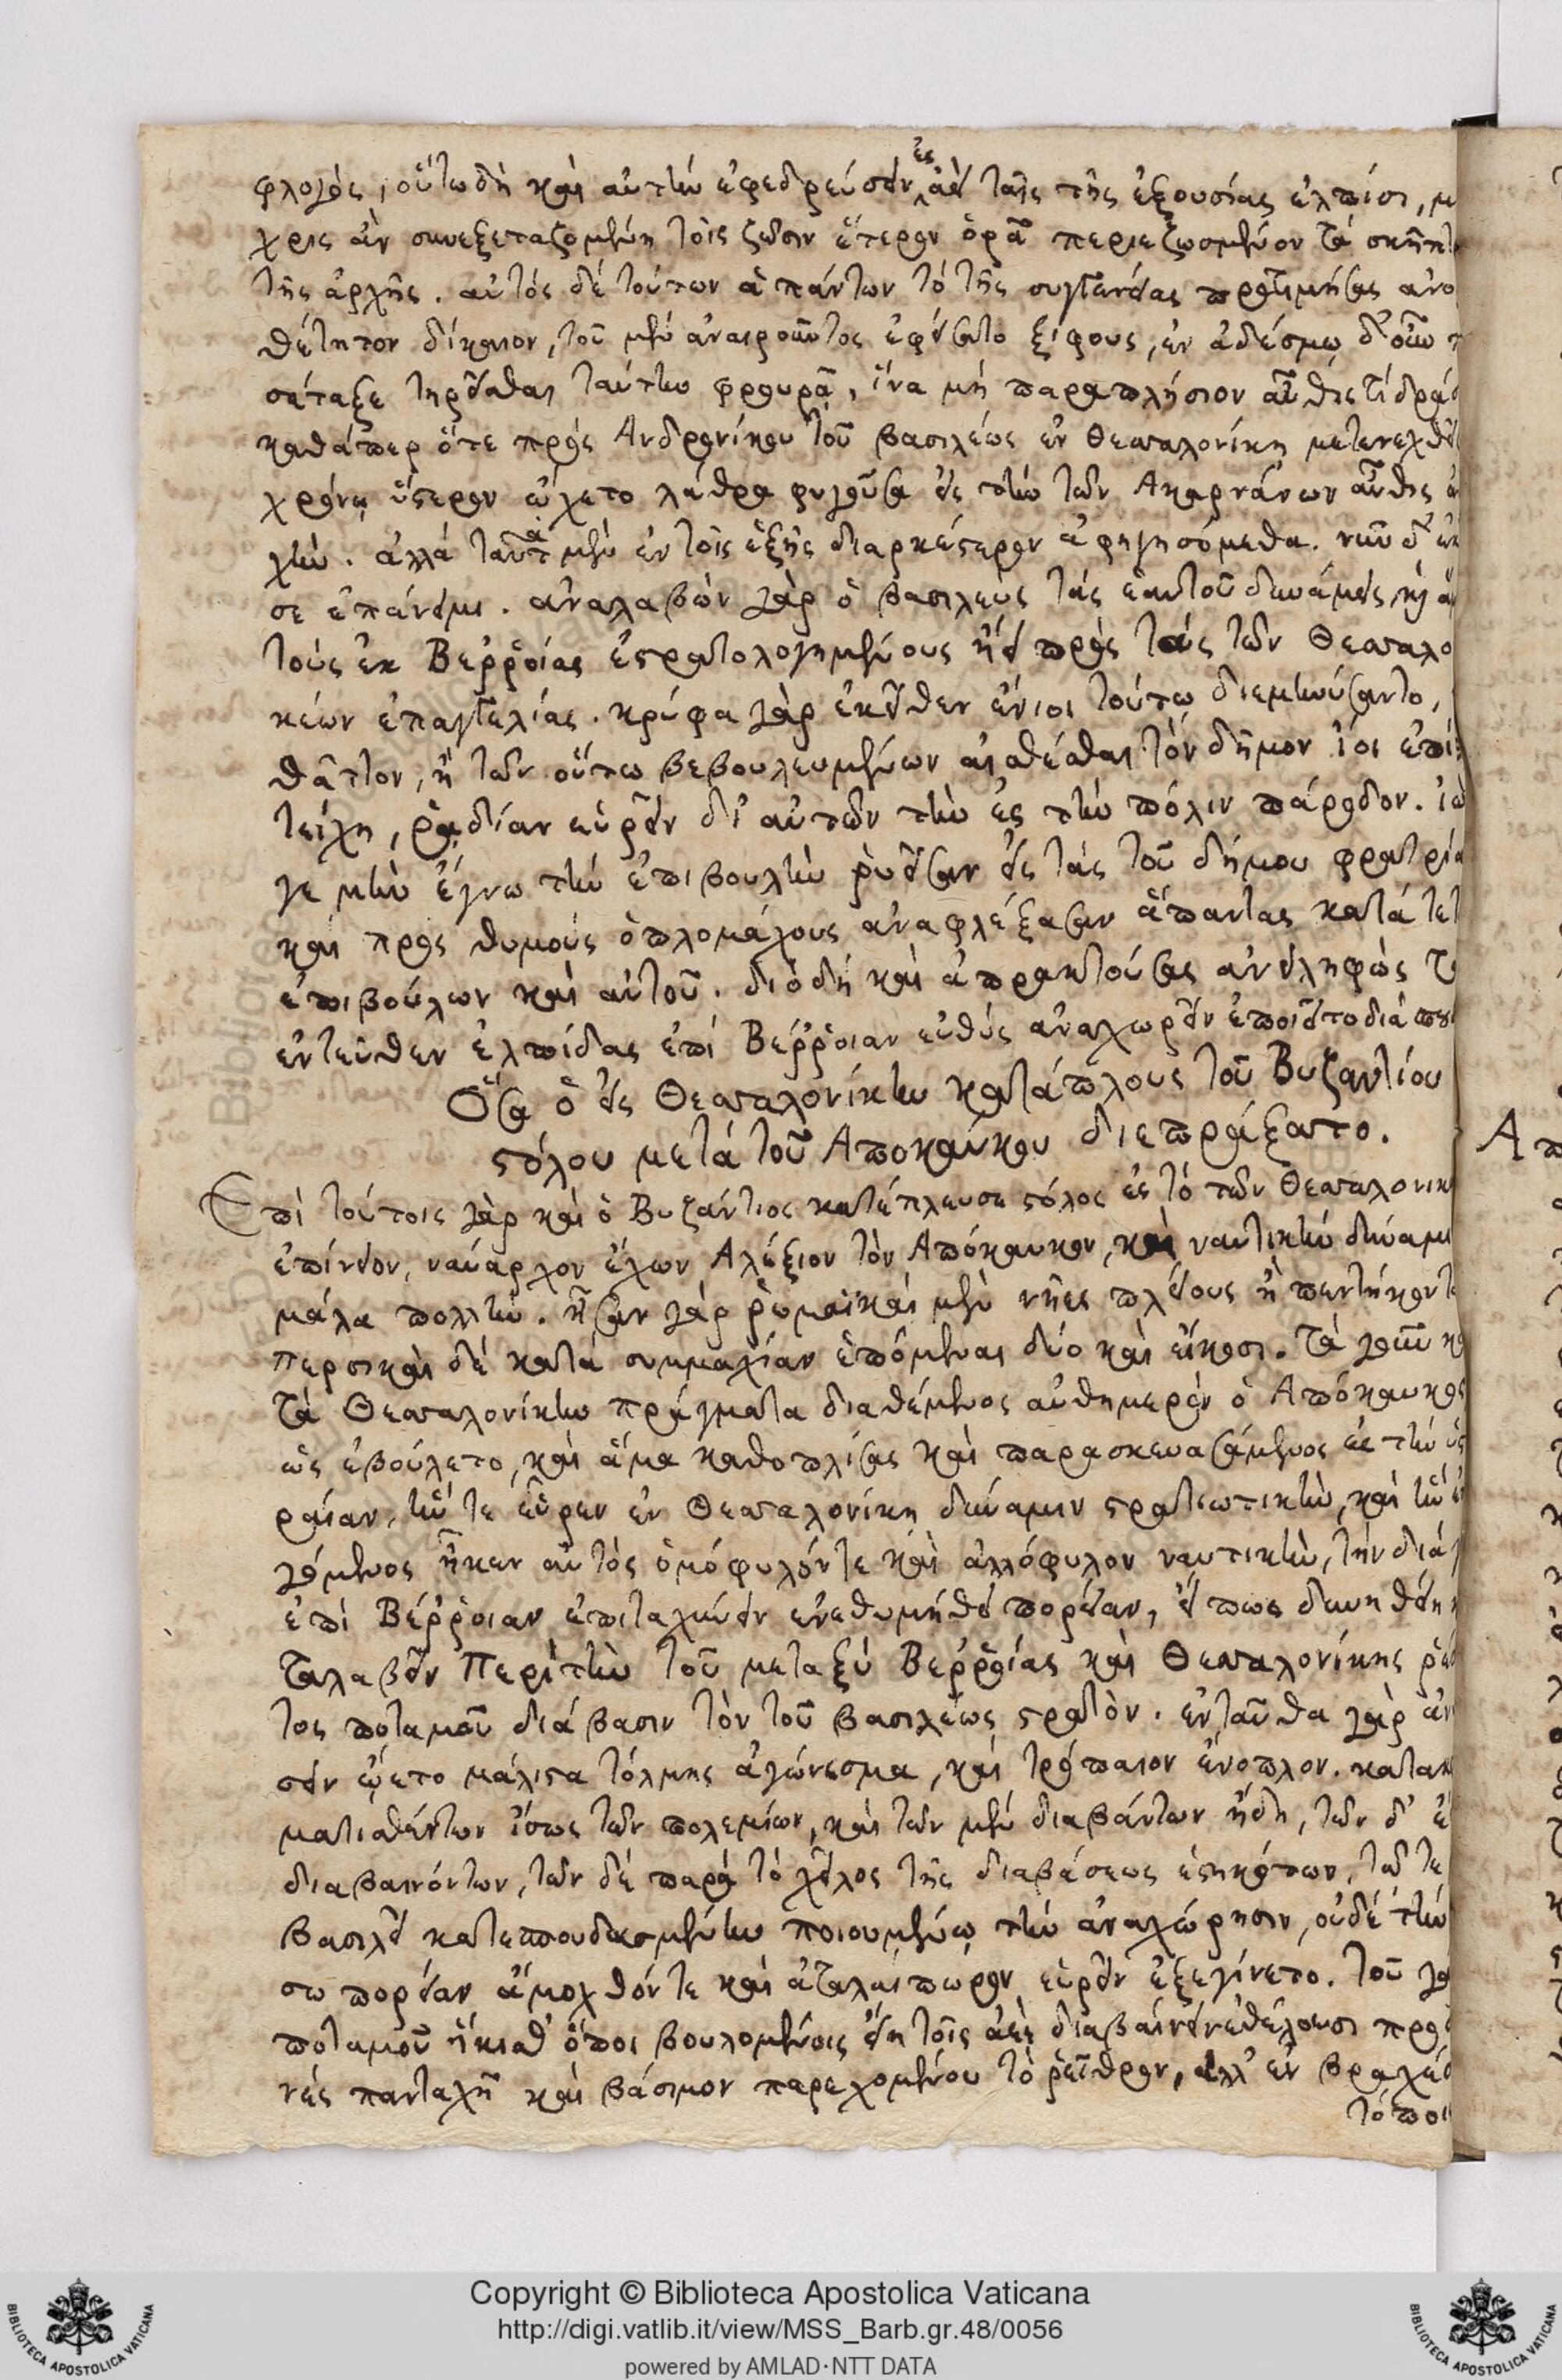 φλογός, οὕτω δὴ καὶ αὐτὴν ἐφεδρεύσειν ἐς ἀεὶ ταῖς τῆς ἐξουσίας ἐλπίσι, μ
χρις ἂν συνεξεταζομένη τοῖς ζῶσιν ἕτερον ὁρᾷ περιεζωσμένον τὰ σκῆπτ
τῆς ἀρχῆς. αὐτὸς δὲ τούτων ἁπάντων τὸ τῆς συγγενείας προτιμήσας ἀνο
θέτητον δίκαιον, τοῦ μὲν ἀναιροῦντος ἐφείσατο ξίφους, ἐν ἀδέσμῳ δ' οὖν
σέταξε τηρεῖσθαι ταύτην φρουρᾷ, ἵνα μὴ παραπλήσιον αὖθίς τι δράσ
καθάπερ ὅτε πρὸς Ανδρονίκου τοῦ βασιλέως ἐν Θεσσαλονίκη μετενεχθεῖ
χρόνῳ ὕστερον ᾤχετο λάθρα φυγοῦσα εἰς τὴν τῶν Ακαρνάνων αὖθις ἀ
χήν. ἀλλὰ ταῦτα μὲν ἐν τοῖς ἑξῆς διαρκέστερον ἀφηγησόμεθα. νῦν δ' ἐκ
σε ἐπάνειμι. ἀναλαβὼν γὰρ ὁ βασιλεὺς τὰς ἑαυτοῦ δυνάμεις, καὶ ἅ
τοὺς ἐκ Βερροίας ἐστρατολογημένους ᾔει πρὸς τὰς τῶν Θεσσαλο
κέων ἐπαγγελίας. κρύφα γὰρ ἐκεῖθεν ἔνιοι τούτῳ διεμηνύσαντο,
θᾶττον, ἢ τῶν οὕτω βεβουλευμένων αἰσθέσθαι τὸν δῆμον ἴοι ἐπὶ
τείχη, ῥᾳδίαν εὑρεῖν δι' αὐτῶν τὴν ἐς τὴν πόλιν πάροδον. ἰὼ
γε μὴν ἔγνω τὴν ἐπιβουλὴν ῥυεῖσαν εἰς τὰς τοῦ δήμου φρατρία
καὶ πρὸς θυμοὺς ὁπλομάχους ἀναφλέξασαν ἅπαντας κατά τε τ
ἐπιβούλων καὶ αὐτοῦ. διὸ δὴ καὶ ἀπρακτούσας ἀνειληφὼς τὰ
ἐντεῦθεν ἐλπίδας ἐπὶ Βέρροιαν εὐθὺς ἀναχωρεῖν ἐποιεῖτο διὰ σπου
Ὅσα ὁ εἰς Θεσσαλονίκην κατάπλους τοῦ Βυζαντίου
στόλου μετὰ τοῦ Αποκαύκου διεπράξατο.
Επὶ τούτοις γὰρ καὶ ὁ Βυζάντιος κατέπλευσε στόλος ἐς τὸ τῶν Θεσσαλονικ
ἐπίνειον, ναύαρχον ἔχων Αλέξιον τὸν Απόκαυκον, καὶ ναυτικὴν δύναμι
μάλα πολλήν. ἦσαν γὰρ ῥωμαϊκαὶ μὲν νῆες πλείους ἢ πεντήκοντα
περσικαὶ δὲ κατὰ συμμαχίαν ἑπόμεναι δύο καὶ εἴκοσι. τὰ γοῦν κα
τὰ Θεσσαλονίκην πράγματα διαθέμενος αὐθημερὸν ὁ Απόκαυκος
ὡς ἐβούλετο, καὶ ἅμα καθοπλίσας καὶ παρασκευασάμενος ἐς τὴν ὑς
ραίαν, ἥν τε εὗρεν ἐν Θεσσαλονίκη δύναμιν στρατιωτικὴν, καὶ ἣν ἐ
γόμενος ἧκεν αὐτὸς ὁμόφυλόν τε καὶ ἀλλόφυλον ναυτικὴν, τὴν διά
ἐπὶ Βέρροιαν ἐπιταχύνειν ἐνεθυμήθη πορείαν, εἴ πως δυνηθείη
ταλαβεῖν περὶ τὴν τοῦ μεταξὺ Βερροίας καὶ Θεσσαλονίκης ῥέο
τος ποταμοῦ διάβασιν τὸν τοῦ βασιλέως στρατὸν. ἐνταῦθα γὰρ ἀν
σειν ᾤετο μάλιστα τόλμης ἀγώνισμα, καὶ τρόπαιον ἔνοπλον. κατακ
ματισθέντων ἴσως τῶν πολεμίων, καὶ τῶν μὲν διαβάντων ἤδη, τῶν δ' ἔ
διαβαινόντων, τῶν δὲ παρὰ τὸ χεῖλος τῆς διαβάσεως ἑστηκότων, τῷ τε
βασιλεῖ κατεσπουδασμένην ποιουμένῳ τὴν ἀναχώρησιν, οὐδὲ τὴν
σω πορείαν ἄμοχθόν τε καὶ ἀταλαίπωρον εὑρεῖν ἐξεγίνετο. τοῦ γὰ
ποταμοῦ ἥκισθ' ὅποι βουλομένοις εἴη τοῖς ἀεὶ διαβαίνειν ἐθέλουσι προς
νὲς πανταχῆ καὶ βάσιμον παρεχομένου τὸ ῥεῖθρον, ἀλλ' ἐν βραχέσ
τόποι
Α
Copyright © Biblioteca Apostolica Vaticana
http://digi.vatlib.it/view/MSS_Barb.gr.48/0056
powered by AMLAD·NTT DATA
BIBLIOTECA APOSTOLICA VATICANA
BIBLIOTECA APOSTOLICA VATICANA